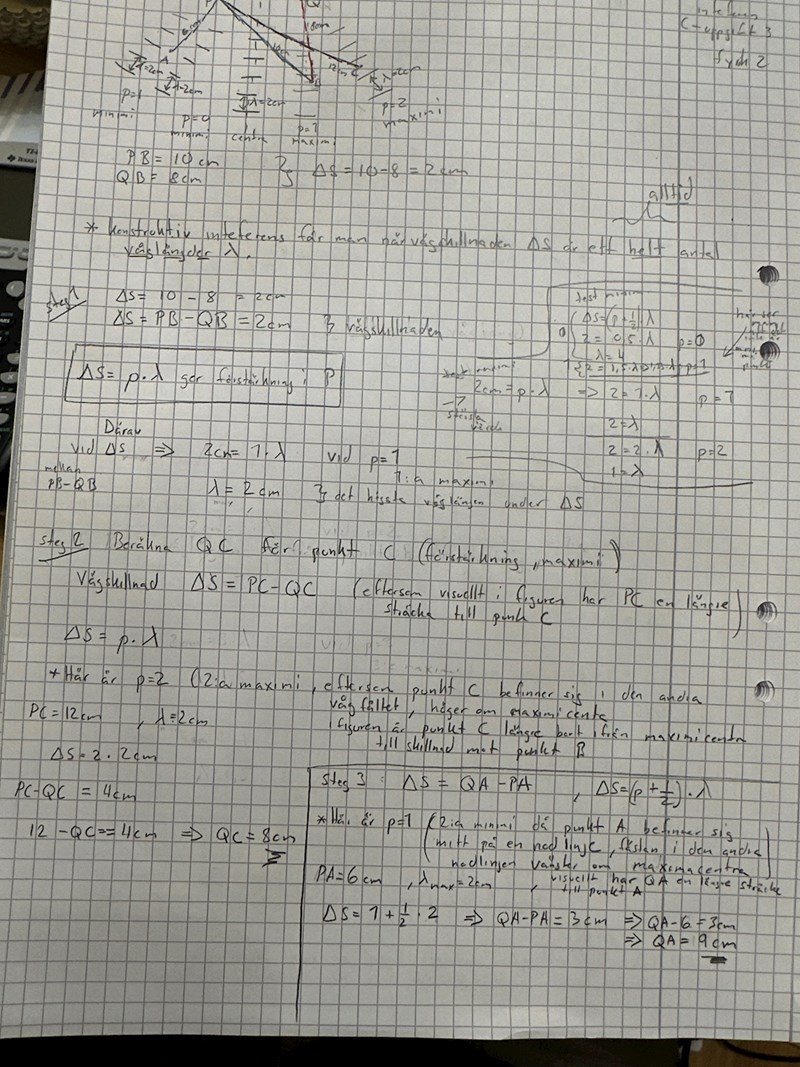 C-uppgift 3
Fysik 2
8cm
10cm
12cm
λ=2cm
λ=2cm
λ=2cm
2cm
p=1
minimi
p=0
minimi
centra
p=1
maximi
p=2
maximi
PB = 10 cm
QB = 8cm
ΔS = 10-8 = 2cm
alltid
* konstruktiv inteferens får man när vägskillnaden ΔS är ett helt antal
våglängder λ.
steg 1
ΔS = 10 - 8 = 2cm
ΔS = PB - QB = 2cm } vägskillnaden
ΔS = p·λ ger förstärkning i P
test minimi
ΔS=(p+½)λ
2 = 0,5·λ p=0
λ=4
2cm = p·λ => 2=1·λ p=1
största
2=λ
2=2·λ p=2
1=λ
Därav
vid ΔS => 2cm = 1·λ vid p=1
1:a maximi
mellan
PB-QB
λ = 2cm } det hissta våglängen under ΔS
steg 2 Beräkna QC för punkt C (förstärkning, maximi)
Vägskillnad ΔS = PC-QC (eftersom visuellt i figuren har PC en längre
sträcka till punk C)
ΔS = p·λ
* Här är p=2 (2:a maximi, eftersom punkt C befinner sig i den andra
vågfältet, höger om maximicentra
i figuren är punkt C längre bort ifrån maximicentra
till skillnad mot punkt B
PC=12cm , λ=2cm
ΔS=2·2cm
PC-QC = 4cm
12-QC=4cm => QC = 8cm
Steg 3 : ΔS = QA-PA , ΔS=(p+½)·λ
* Här är p=1 (2:a minimi då punkt A befinner sig
mitt på en nodlinje, i den andra
nodlinjen vänster om maximacentra)
PA=6cm , λmax=2cm , visuellt har QA en längre sträcka
till punkt A
ΔS=1+½·2 => QA-PA=3cm => QA-6=3cm
=> QA = 9cm